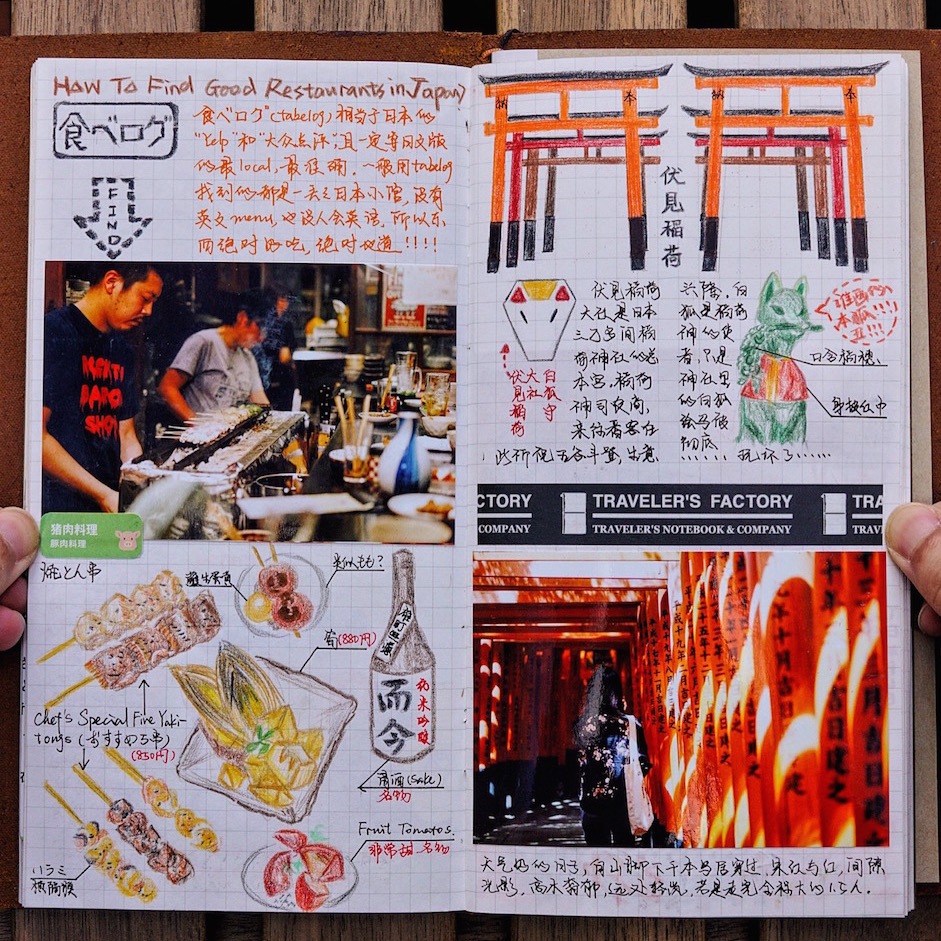 How To Find Good Restaurants in Japan
食べログ
FIND
食べログ(tabelog)相当于日本的
"Yelp"和"大众点评",且一定等日文版
的最local,最准确.一般用tabelog
找到的都是一些日本小馆,没有
英文menu,也没人会英语,所以东
西绝对好吃,绝对地道!!!!
猪肉料理
豚肉料理
焼とん串
类似もも?
筍(880円)
而今
純米吟醸
清酒(Sake)
名物
Chef's Special Five Yaki-
tongs (おすすめ5串)
(850円)
Fruit Tomatos.
非常甜 名物
ハラミ
横隔膜
納 奉
納 奉
伏見稲荷
伏见稲荷
大社是日本
三万多间稲
荷神社的总
本宫,稲荷
神司农商,
来往香客在
此祈祝五谷丰登,生意
兴隆.白
狐是稲荷
神的使
者,只是
神社里
的白狐
给马被
彻底
玩坏了......
伏見稲荷
大社
白狐守
口含稲穗
身披红巾
TORY
COMPANY
TRAVELER'S FACTORY
TRAVELER'S NOTEBOOK & COMPANY
TRA
TRAVEL
天气好的日子,自山脚下千本鸟居穿过,朱红与红,间隙
光影,